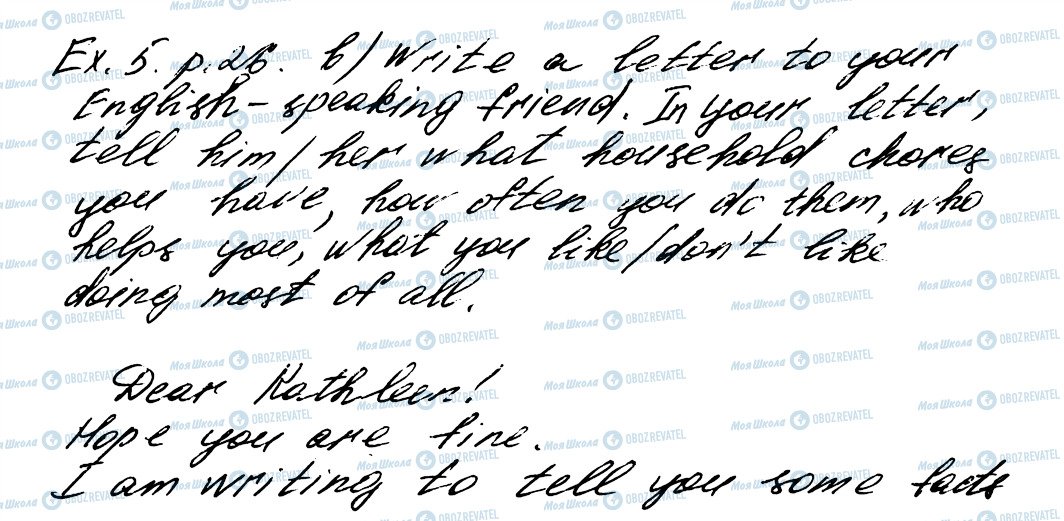 Ex. 5. p. 26. b) Write a letter to your
English-speaking friend. In your letter,
tell him/her what household chores
you have, how often you do them, who
helps you, what you like/don't like
doing most of all.
Dear Kathleen!
Hope you are fine.
I am writing to tell you some facts